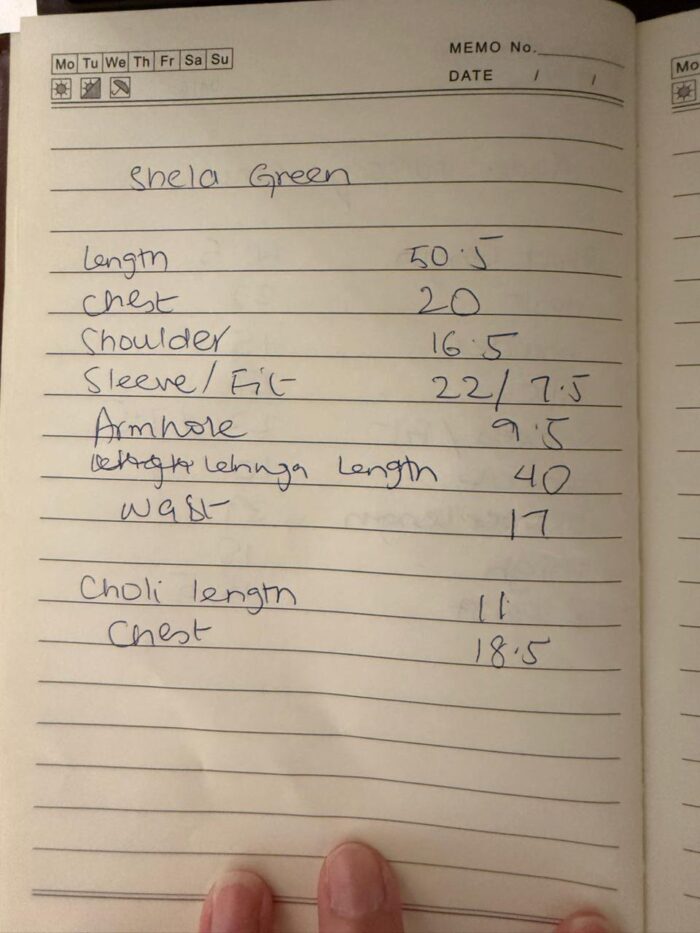 Mo Tu We Th Fr Sa Su
MEMO No.
DATE / /
Mo
Shela Green
Length 50.5
Chest 20
Shoulder 16.5
Sleeve / Fit 22 / 7.5
Armhole 9.5
Lehnga Length 40
wast 17
Choli length 11
Chest 18.5